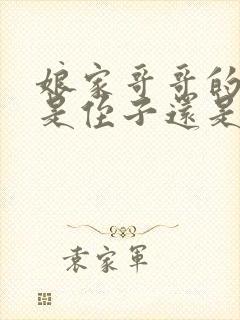 娘家哥哥的
是侄子還是
袁家軍